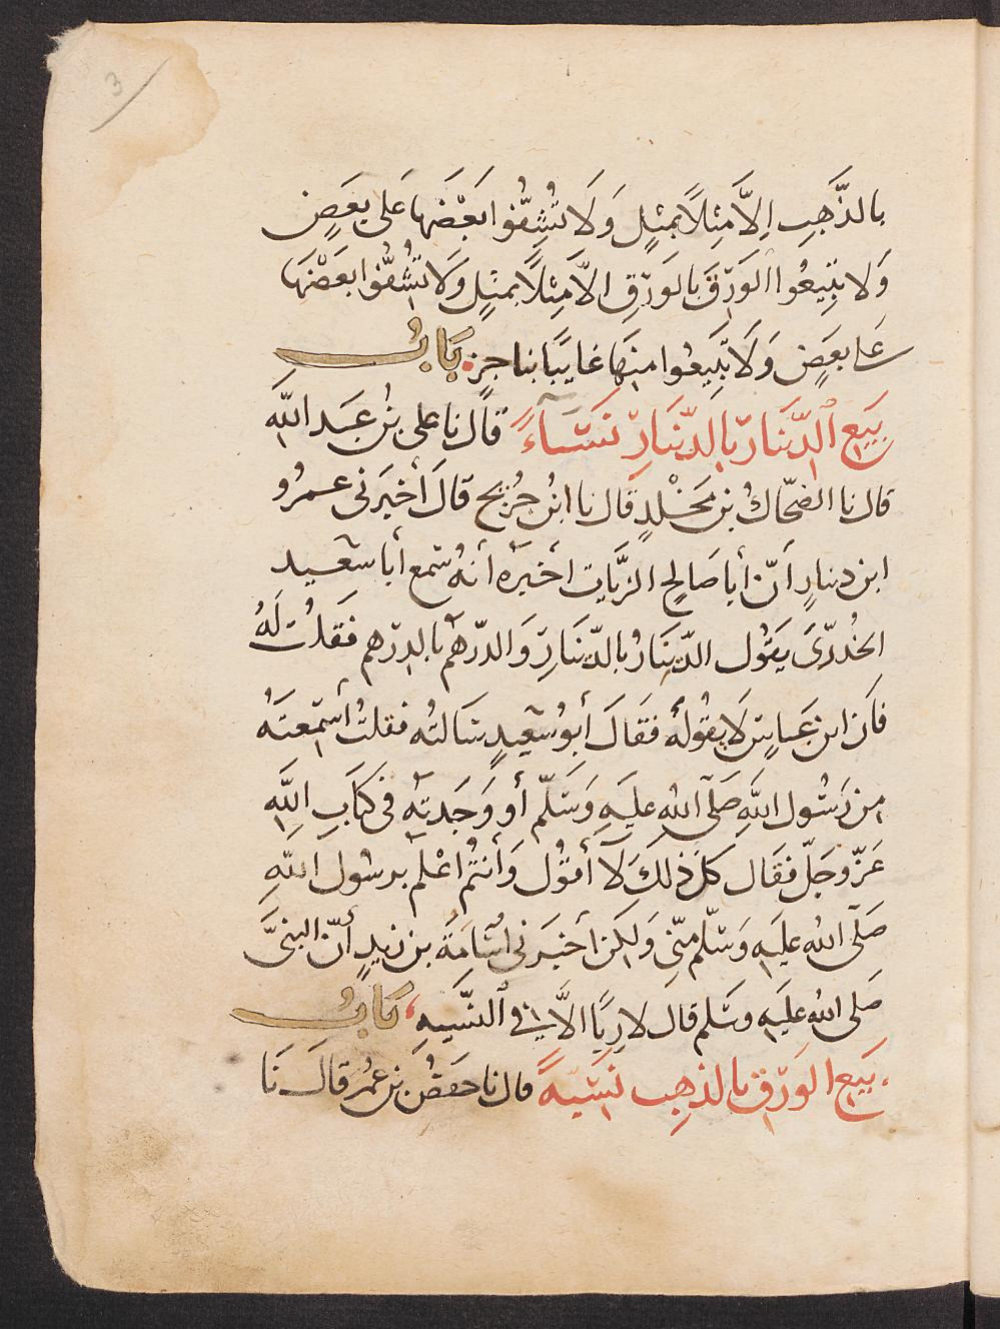 3
بالذَّهَبِ اِلاَّ مِثلاً بمِثلٍ وَلَا تُشِفُّوا بَعْضَهَا عَلى بعَضٍ
وَلا تبِيعُوا الوَرِقَ بالوَرِقِ الاّ مِثلاً بمثلٍ وَلَا تُشِفُّوا بعَضْهَا
عَلى بعَضٍ وَلَا تبَيعُوا منهَا غايبًا بناجزٍ بَابُ
بَيعِ الدّينَارِ بالدّينَارِ نَسَاءً قالَ نا على بنُ عَبد اللهِ
قال نا الضحّاكُ بن مَخْلَدٍ قال نا ابنُ جُرَيج قالَ أخبَرَنى عمرُو
ابن دينارٍ أنّ أبا صَالحٍ الزيَّات اخبَرَه أنهُ سَمع أبا سَعيد
الخُدرّىَ يقَول الدّينَارُ بالدّينَارِ وَالدرهَمُ بالدرَهم فقَلتُ لَهُ
فَان ابن عَباسٍ لَا يقولهُ فقَالَ أبوُ سَعيدٍ سَالتُه فقلتُ أسَمعتَهُ
مِن رَسُول اللهِ صَلّى اللهُ عليَهِ وَسَلّم أو وَجَدتهُ فى كتَابِ اللهِ
عَزّ وجَلّ فقَال كلّ ذلكَ لَا أقوُل وَأنتُم اعْلمُ برسُول اللهِ
صَلّى اللهُ عليَهِ وَسَلّم منّى وَلكِن اخبَرنى أسَامَةُ بن زيدٍ أنّ النبىَّ
صَلى اللهُ عليَهِ وسَلم قال لا رِبَا الاَّ في النَّسيهِ بَابُ
بَيعِ الوَرِق بالذهِب نَسَيّهً قال نا حَفصُ بن عمُر قالَ نَا